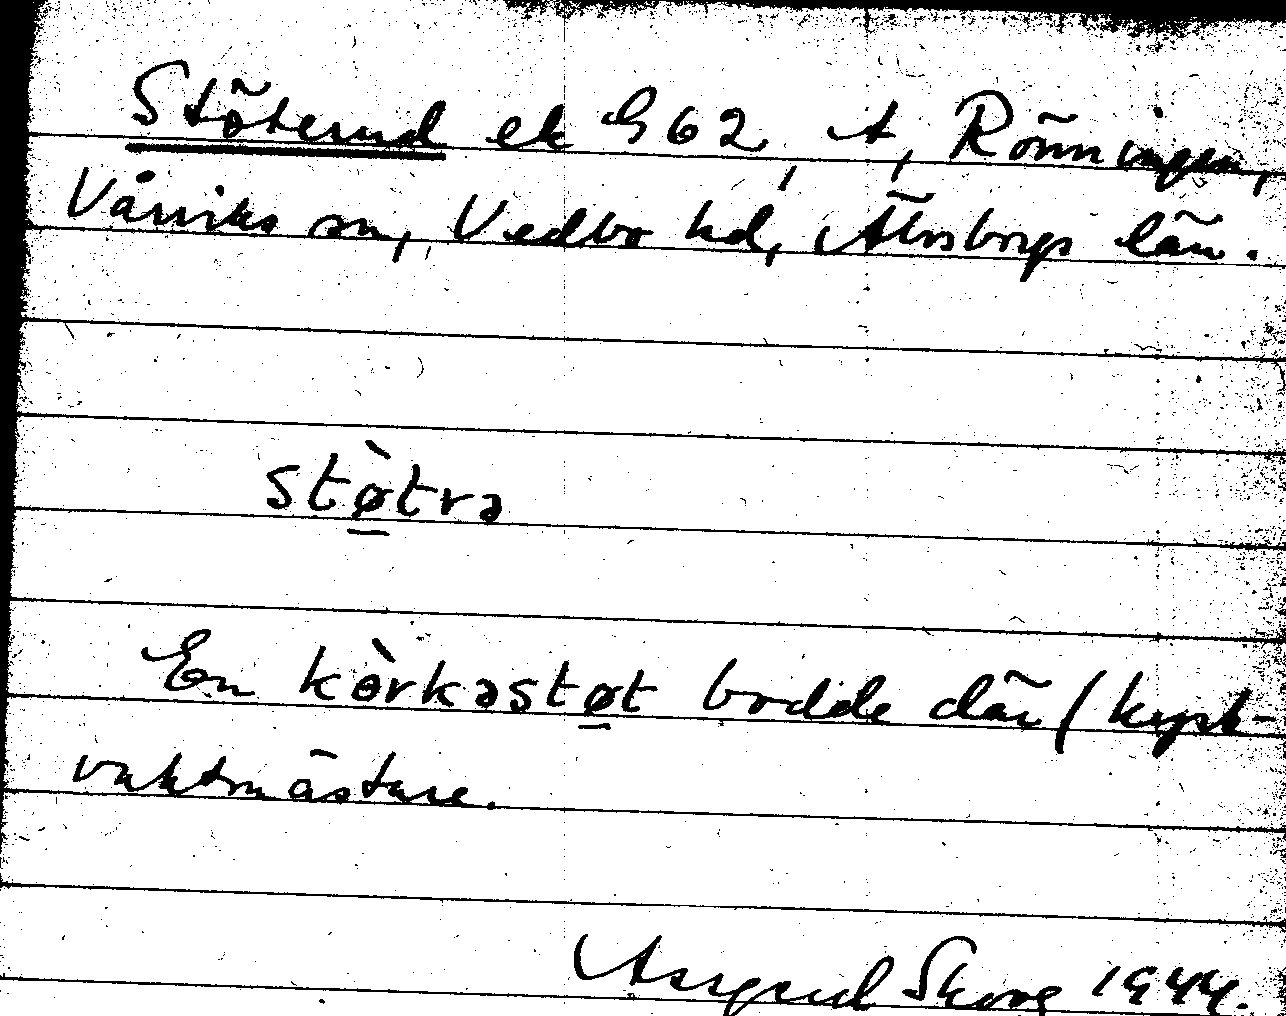 Stöterud ek G 62, t, Rönningen,
Vårviks sn, Vedbo hd, Älvsborgs län.
stø̀trə
En kɵ̀rkəstøt bodde där (kyrk-
vaktmästare.
Assgerd Skoog 1944.